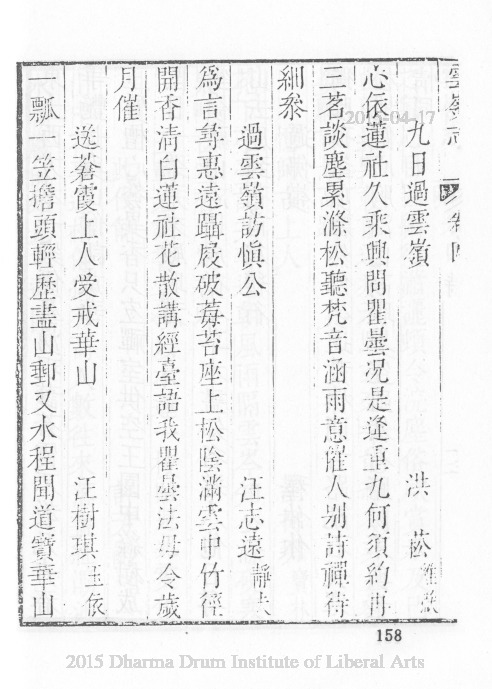 雲嶺志 卷四
九日過雲嶺 洪 菘
心依蓮社久乘興問瞿曇况是逢重九何須約再
三茗談塵累滌松聽梵音涵雨意催人别詩禪待
細叅
過雲嶺訪愼公 汪志遠 靜夫
爲言尋惠遠躡屐破莓苔座上松陰滿雲中竹徑
開香清白蓮社花散講經臺語我瞿曇法毋令歲
月催
送蒼霞上人受戒華山 汪樹琪 玉依
一瓢一笠擔頭輕歷盡山郵又水程聞道寶華山
158
2015-04-17
2015 Dharma Drum Institute of Liberal Arts